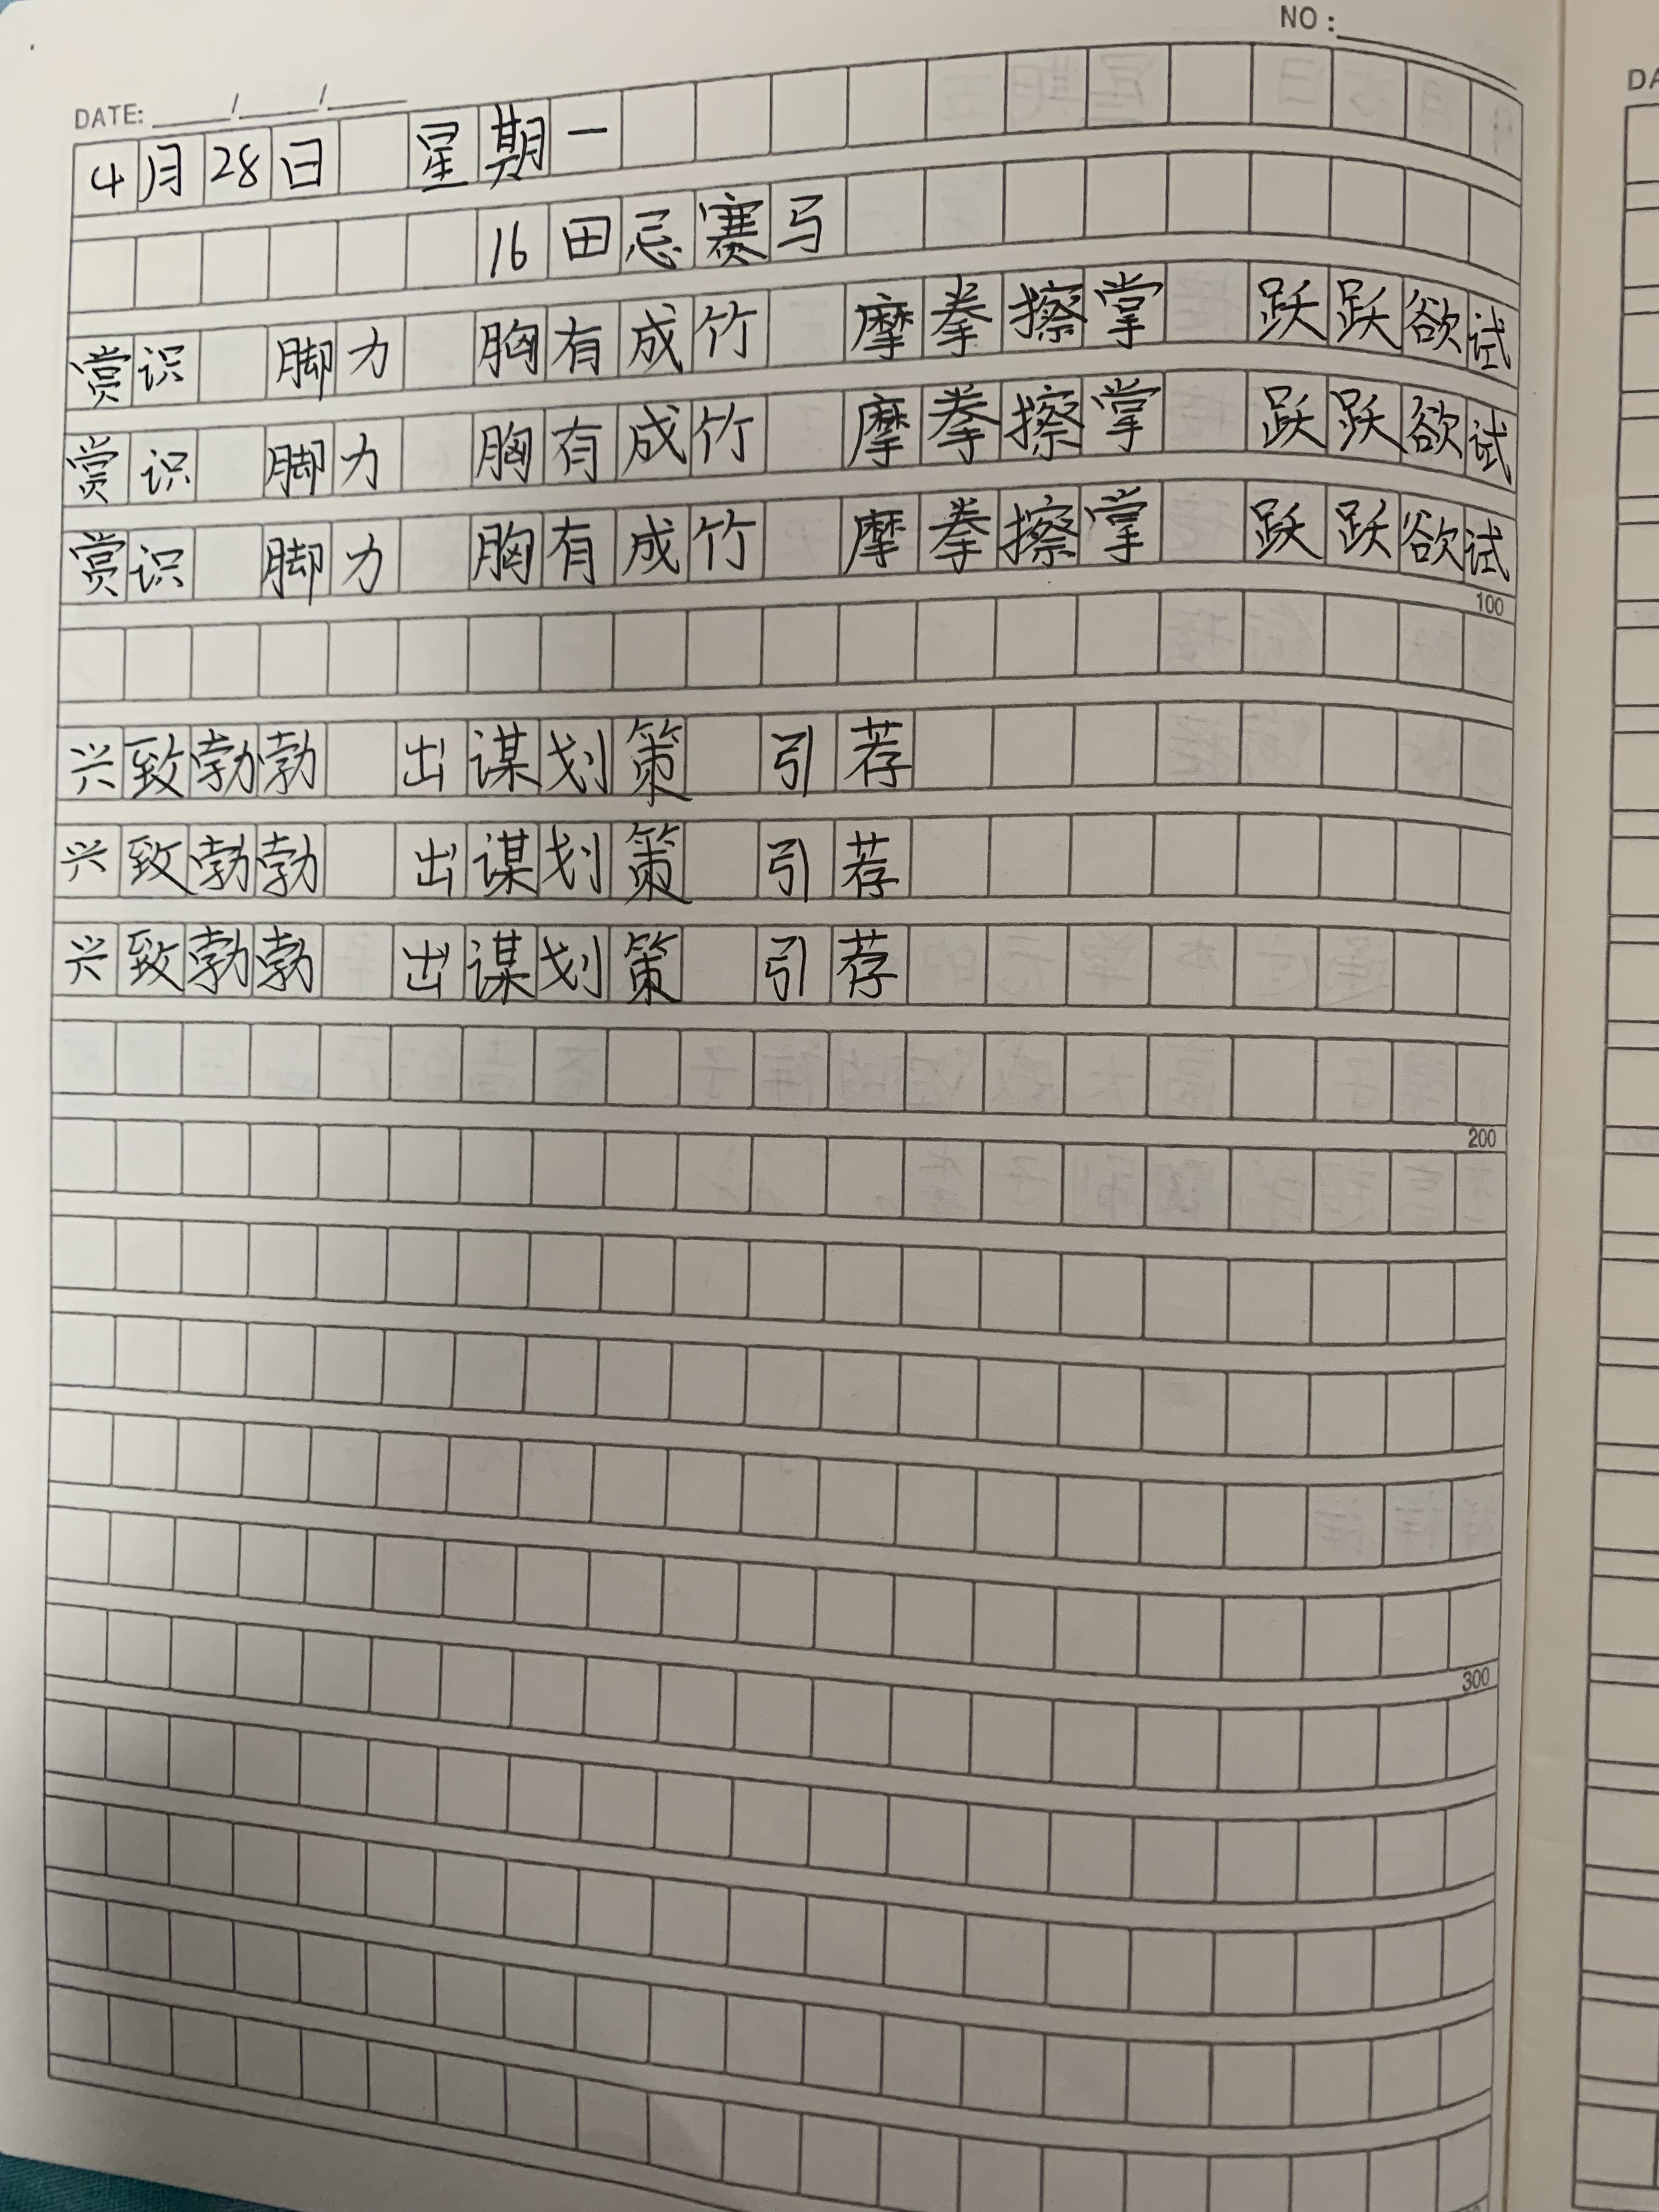 NO:
DATE: / /
4月28日 星期一
16 田忌赛马
赏识 脚力 胸有成竹 摩拳擦掌 跃跃欲试
赏识 脚力 胸有成竹 摩拳擦掌 跃跃欲试
赏识 脚力 胸有成竹 摩拳擦掌 跃跃欲试
100
兴致勃勃 出谋划策 引荐
兴致勃勃 出谋划策 引荐
兴致勃勃 出谋划策 引荐
200
300
DA